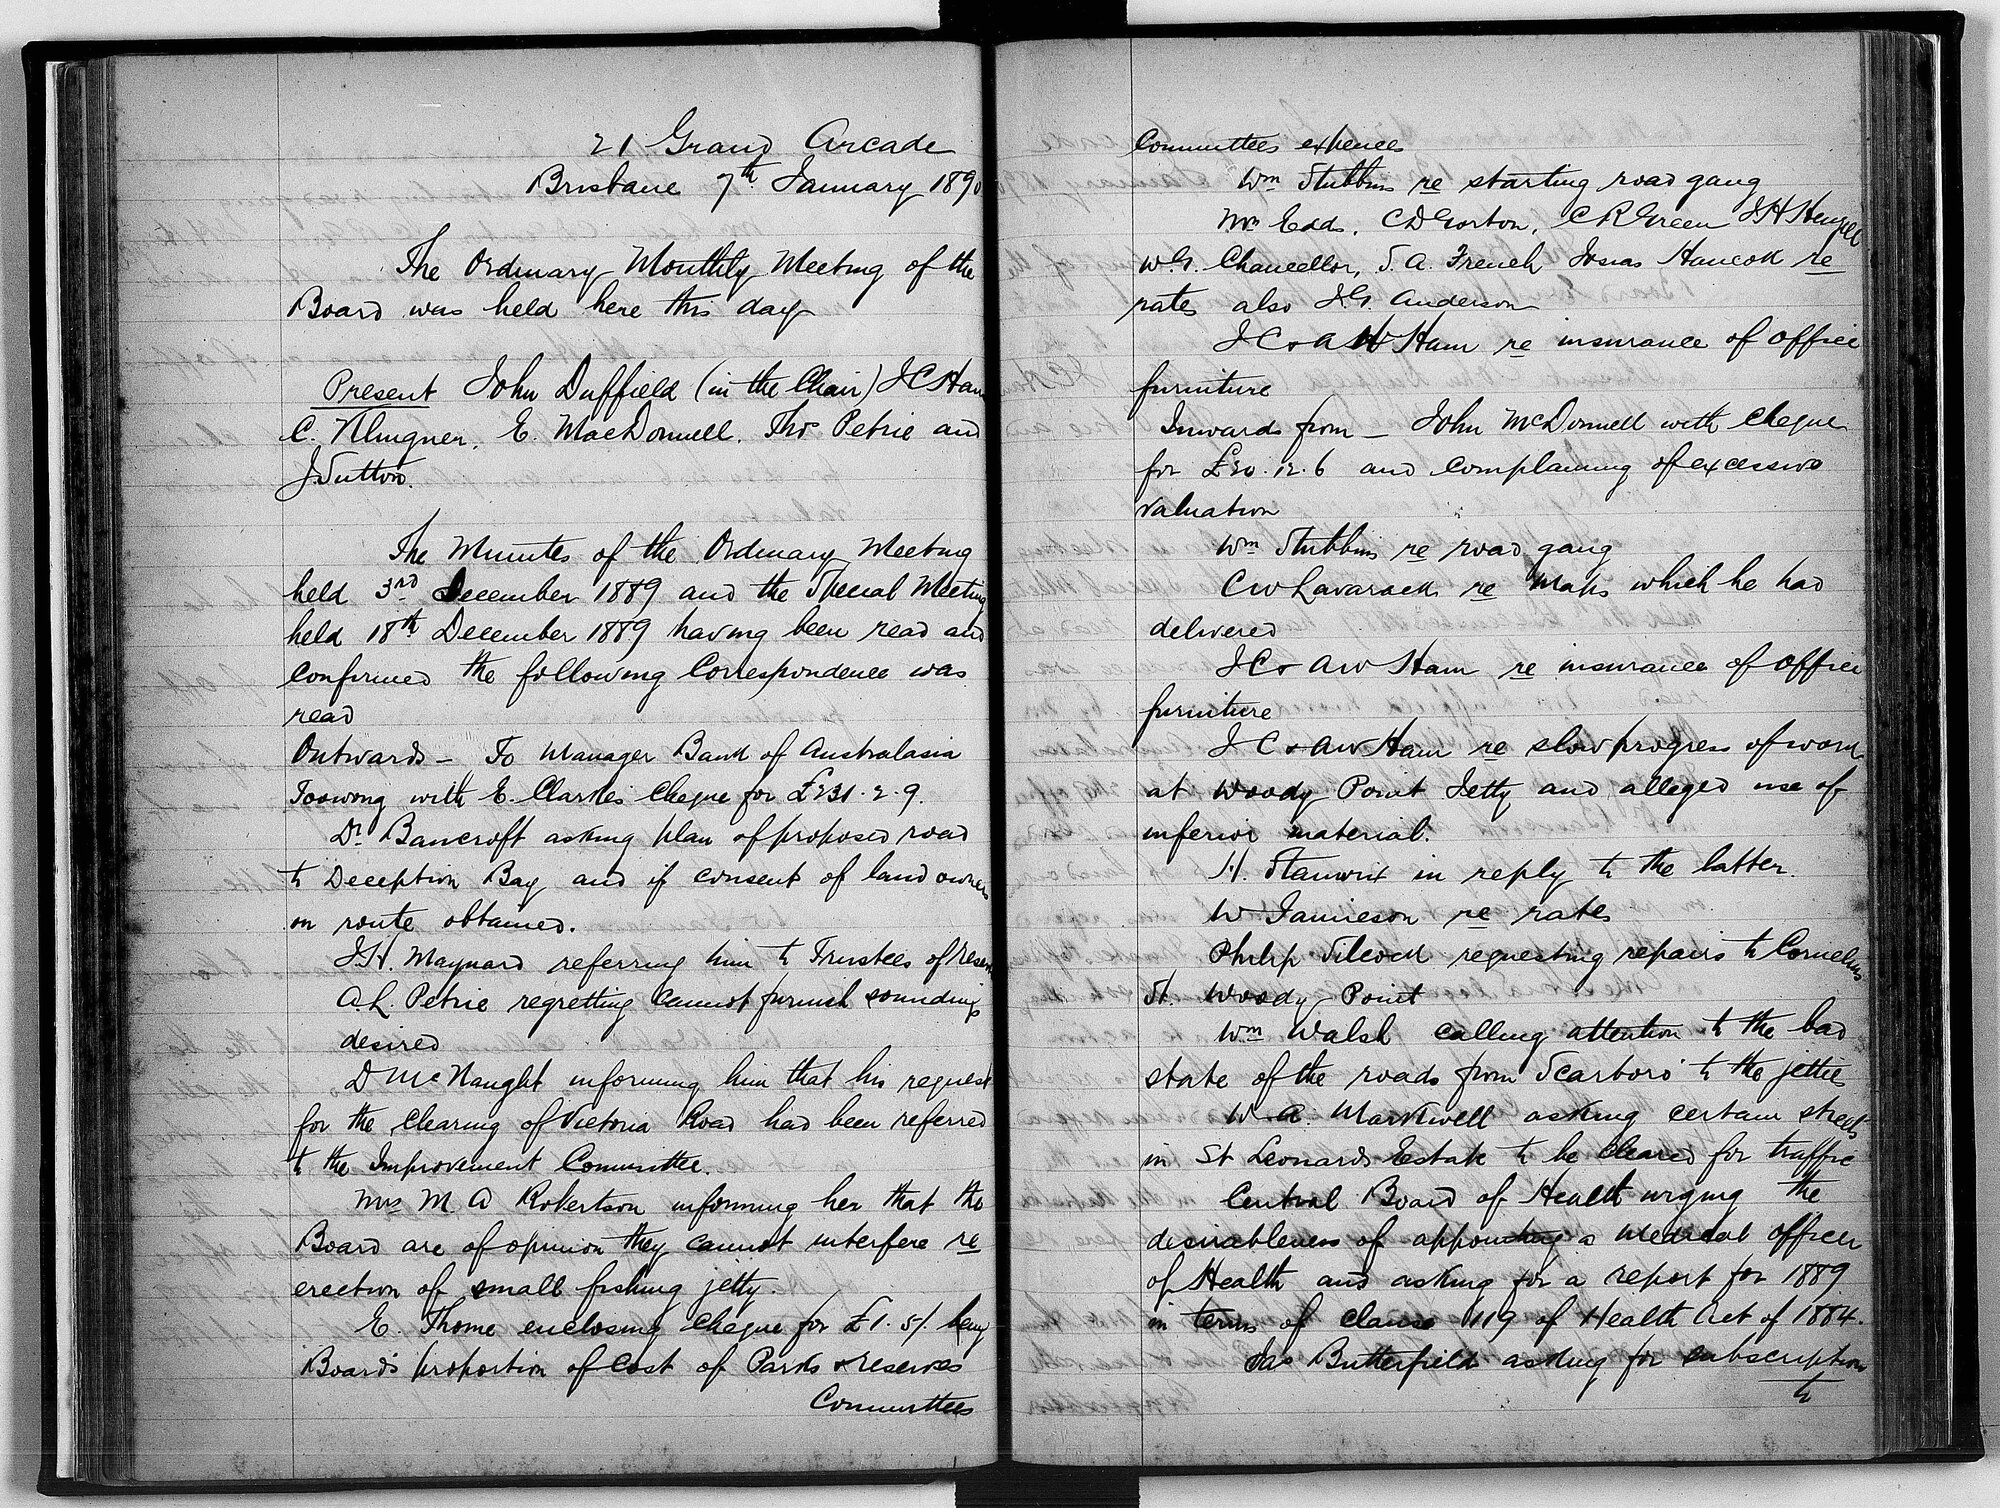 21 Grand Arcade
Brisbane 7th January 1890
The Ordinary Monthly Meeting of the
Board was held here this day
Present John Duffield (in the Chair) J C Ham
C. Klingner, E. MacDonnell. Thos Petrie and
J Sutton.
The Minutes of the Ordinary Meeting
held 3rd December 1889 and the Special Meeting
held 18th December 1889 having been read and
confirmed the following Correspondence was
read
Outwards - To Manager Bank of Australasia
Toowong with E. Clarke's cheque for £231.2.9.
Dr Bancroft asking plan of proposed road
to Deception Bay and if consent of land owners
on route obtained.
J.H. Maynard referring him to Trustees of reserve
A.L. Petrie regretting cannot furnish soundings
desired
D McNaught informing him that his request
for the clearing of Victoria Road had been referred
to the Improvement Committee.
Mrs M A Robertson informing her that the
Board are of opinion they cannot interfere re
erection of small fishing jetty.
E. Thorne enclosing cheque for £1.5/. being
Board's proportion of cost of Parks & reserves
Committees
Committees expences
Wm Stubbins re starting road gang
Mrs Edds, C D Gorton, C R Green J H
W.G. Chancellor, S. A. French Josias Hancock re
rates also J.G. Anderson
J C & A W Ham re insurance of office
furniture
Inwards from - John McDonnell with cheque
for £20.12.6 and complaining of excessive
valuation
Wm Stubbins re road gang
C W Lavarack re maps which he had
delivered
J C & A W Ham re insurance of office
furniture
J C & A W Ham re slow progress of work
at Woody Point Jetty and alleged use of
inferior material.
H. Stanwix in reply to the latter.
W Jamieson re rates
Philip Silcock requesting repairs to Cornelius
St. Woody Point
Wm Walsh calling attention to the bad
state of the roads from Scarboro' to the jetties
W. A. Markwell asking certain streets
in St Leonards Estate to be cleared for traffic
Central Board of Health urging the
desirableness of appointing a Medical officer
of Health and asking for a report for 1889
in terms of clause 119 of Health Act of 1884.
Jas Butterfield asking for subscription
to